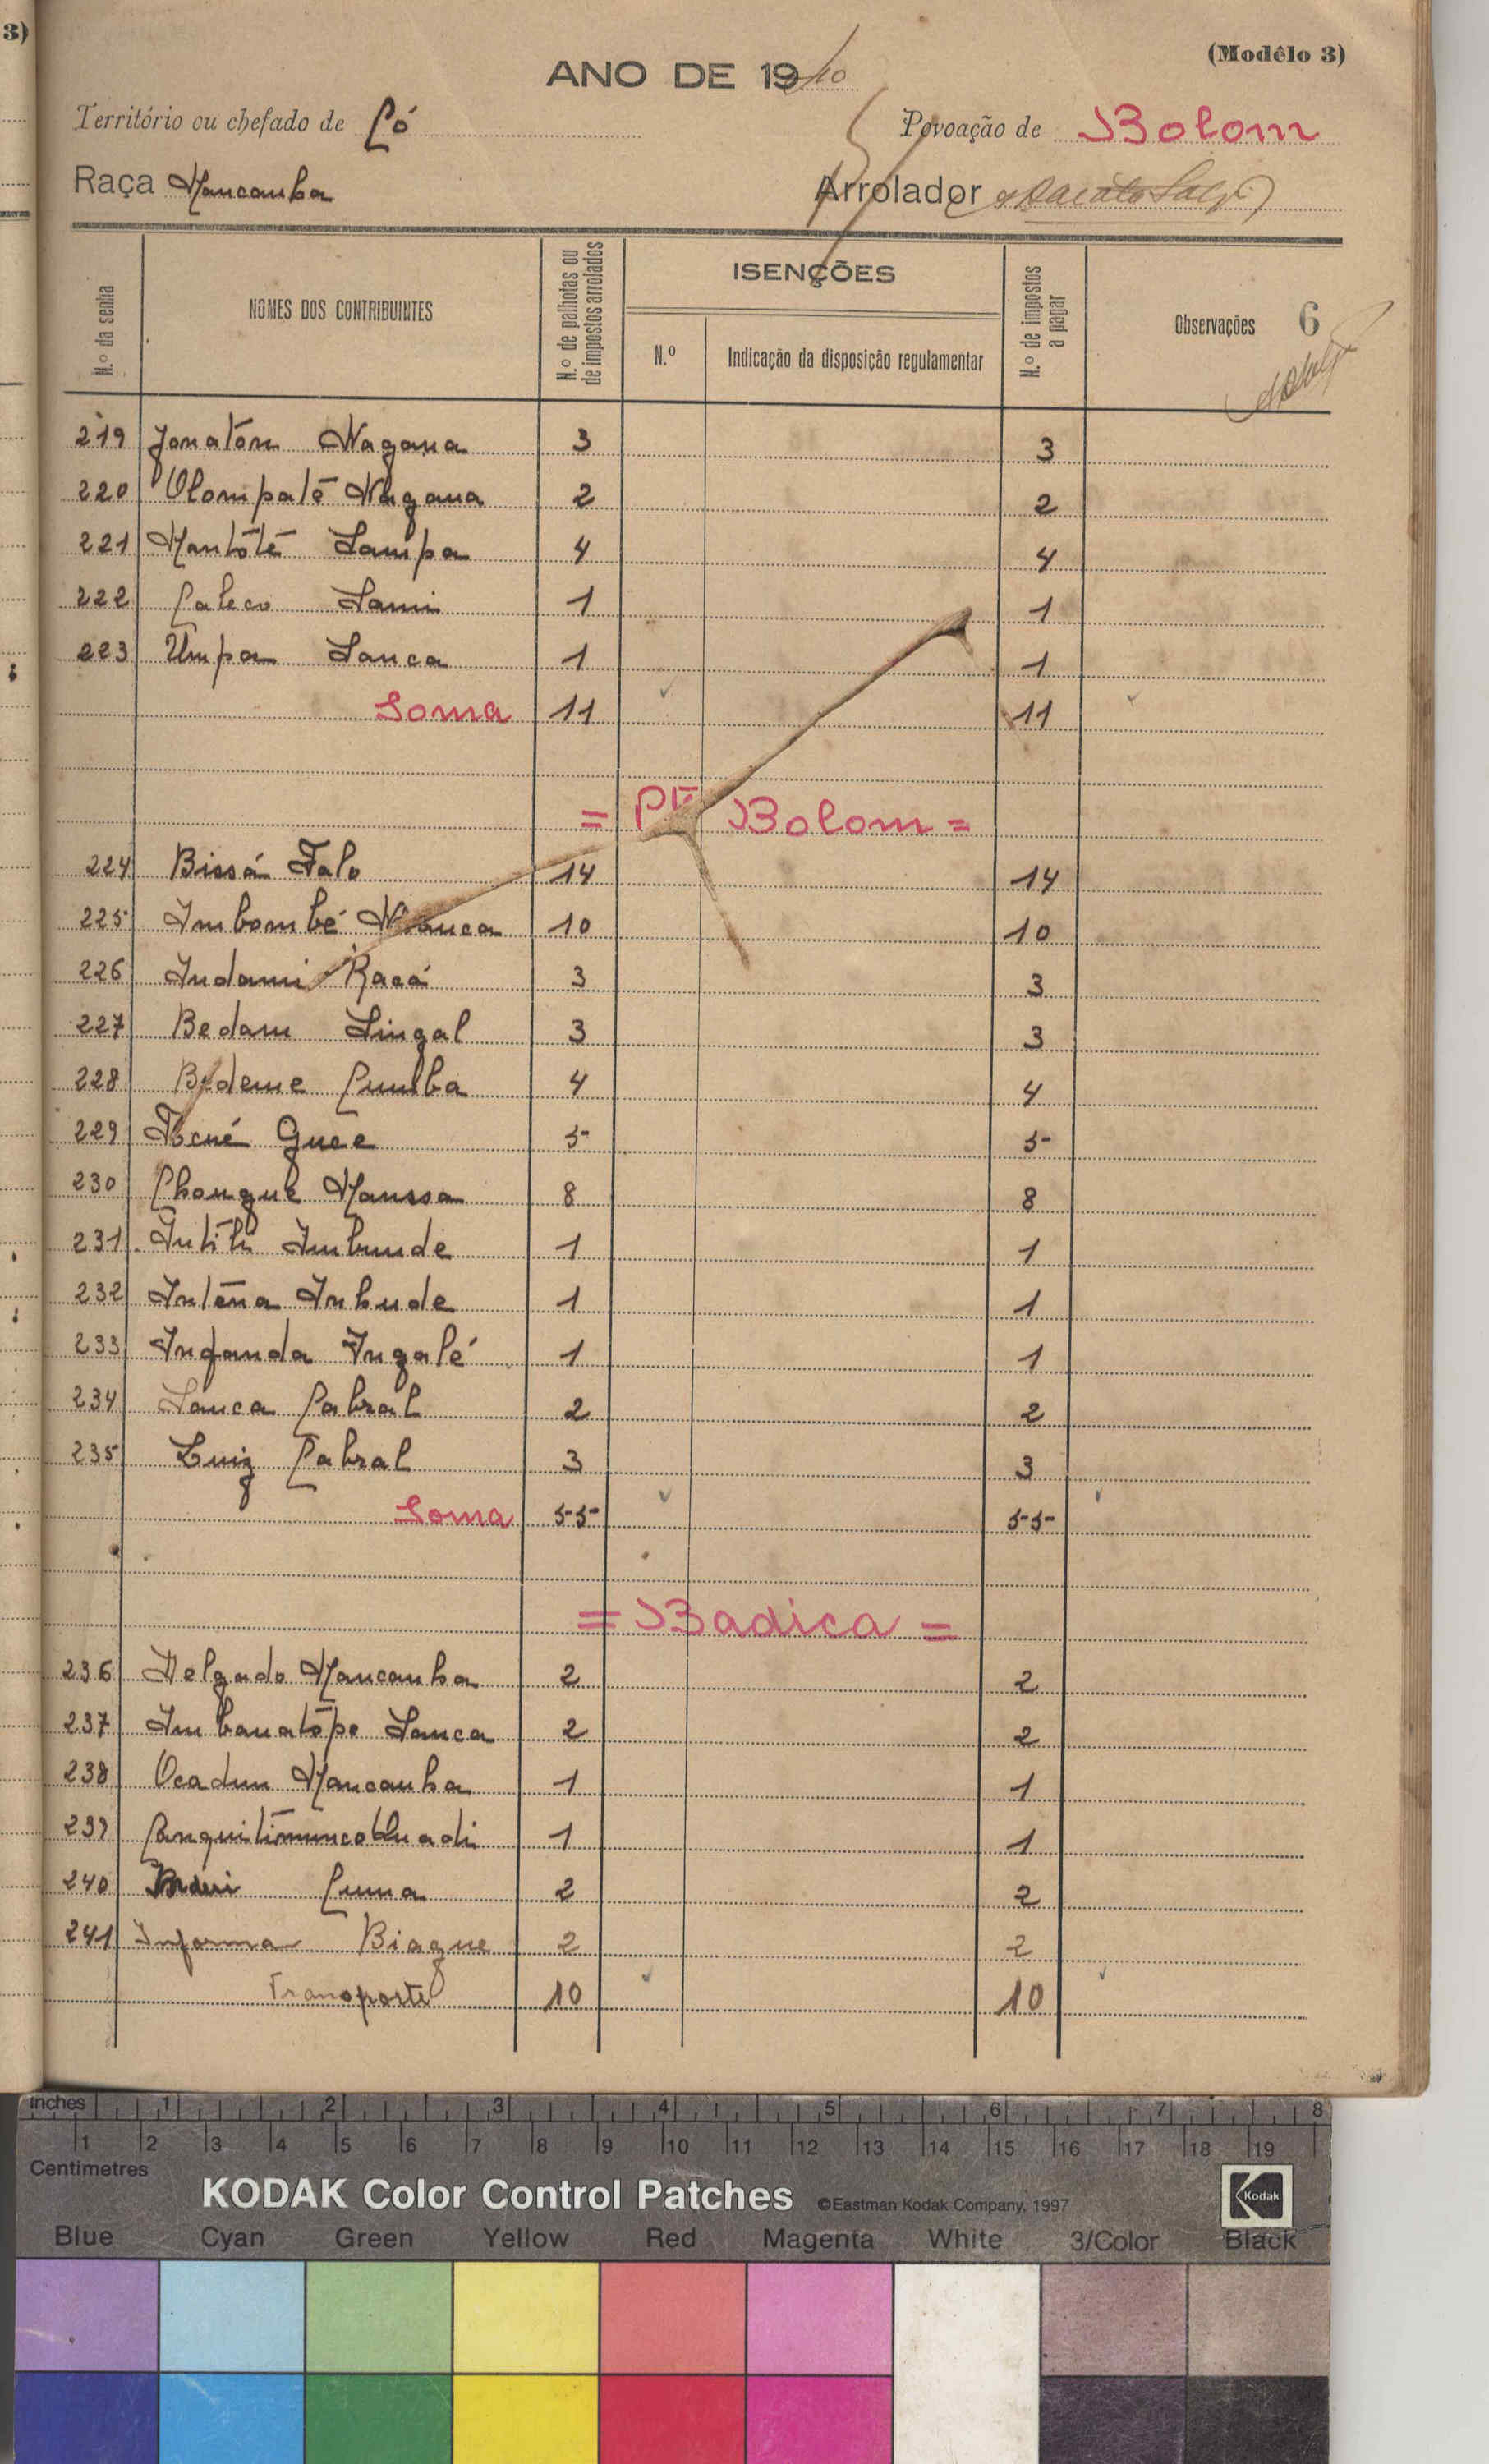 3)
(Modêlo 3)
ANO DE 1940
Território ou chefado de Có
Povoação de Bolom
Raça Mancanha
Arrolador
N.º da senha
NOMES DOS CONTRIBUINTES
N.º de palhotas ou de impostos arrolados
ISENÇÕES
N.º
Indicação da disposição regulamentar
N.º de impostos a pagar
Observações 6
219 Jonatón Nagana 3 3
220 Olompatê Nagana 2 2
221 Mantóté Sampa 4 4
222 Caleco Sami 1 1
223 Umpa Sanca 1 1
Soma 11 11
= Bolom =
224 Bissá Falo 14 14
225 Imbombé 10 10
226 Indami Racá 3 3
227 Bedam Lingal 3 3
228 Bedeme Cumba 4 4
229 Guee 5 5
230 Chongue Manssa 8 8
231 Imbunde 1 1
232 Intena Inbude 1 1
233 Infanda Ingalé 1 1
234 Sanca Cabral 2 2
235 Luiz Cabral 3 3
Soma 55 55
= Badica =
236 Delgado Mancanha 2 2
237 Imbanatópe Sanca 2 2
238 Ocadun Mancanha 1 1
239 1 1
240 Cuma 2 2
241 Informa Biague 2 2
Transporte 10 10
inches 1 2 3 4 5 6 7 8
1 2 3 4 5 6 7 8 9 10 11 12 13 14 15 16 17 18 19
Centimetres
KODAK Color Control Patches ©Eastman Kodak Company, 1997 Kodak
Blue Cyan Green Yellow Red Magenta White 3/Color Black